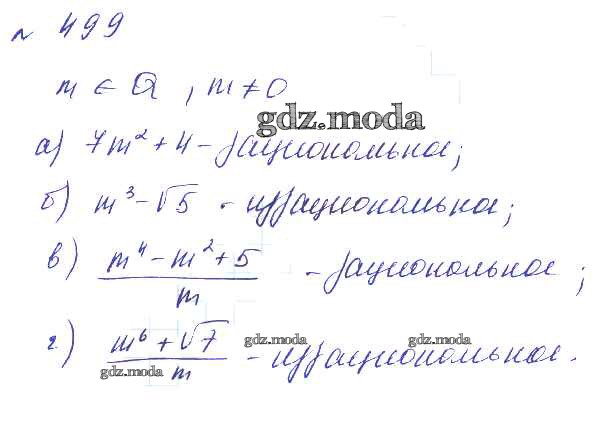 № 499
m ∈ Q, m ≠ 0
gdz.moda
а) 7m² + 4 - рациональное;
б) m³ - √5 - иррациональное;
в) (m⁴ - m² + 5)/m - рациональное;
г) (m⁶ + √7)/m - иррациональное.
gdz.moda gdz.moda
gdz.moda